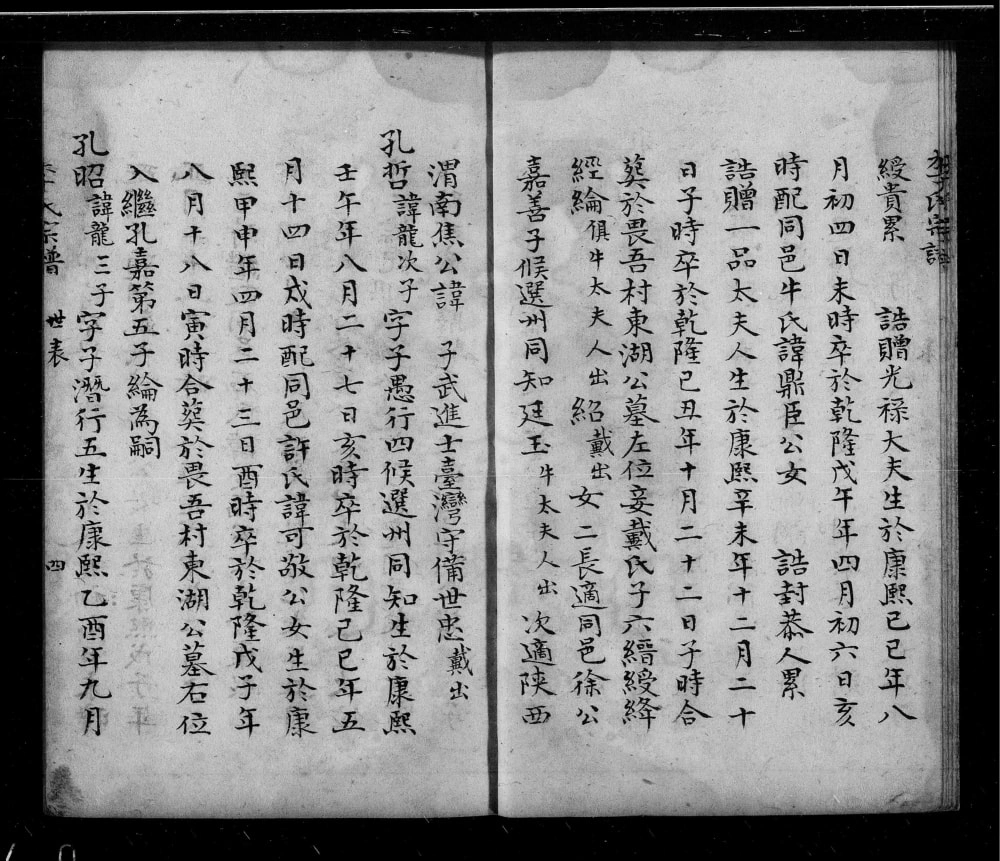 李氏宗譜
綬貴累　誥贈光祿大夫生於康熙己巳年八
月初四日未時卒於乾隆戊午年四月初六日亥
時配同邑牛氏諱鼎臣公女　誥封恭人累
誥贈一品太夫人生於康熙辛未年十二月二十
日子時卒於乾隆己丑年十月二十二日子時合
葬於畏吾村東湖公墓左位妾戴氏子六縉綬絳
經綸俱牛太夫人出紹戴出女二長適同邑徐公
嘉善子候選州同知廷玉牛太夫人出次適陝西
渭南焦公諱　子武進士臺灣守備世忠戴出
孔哲諱龍次子字子愚行四候選州同知生於康熙
壬午年八月二十七日亥時卒於乾隆己巳年五
月十四日戌時配同邑許氏諱可敬公女生於康
熙甲申年四月二十三日酉時卒於乾隆戊子年
八月十八日寅時合葬於畏吾村東湖公墓右位
入繼孔嘉第五子綸為嗣
孔昭諱龍三子字子潛行五生於康熙乙酉年九月
李氏宗譜　世表　四